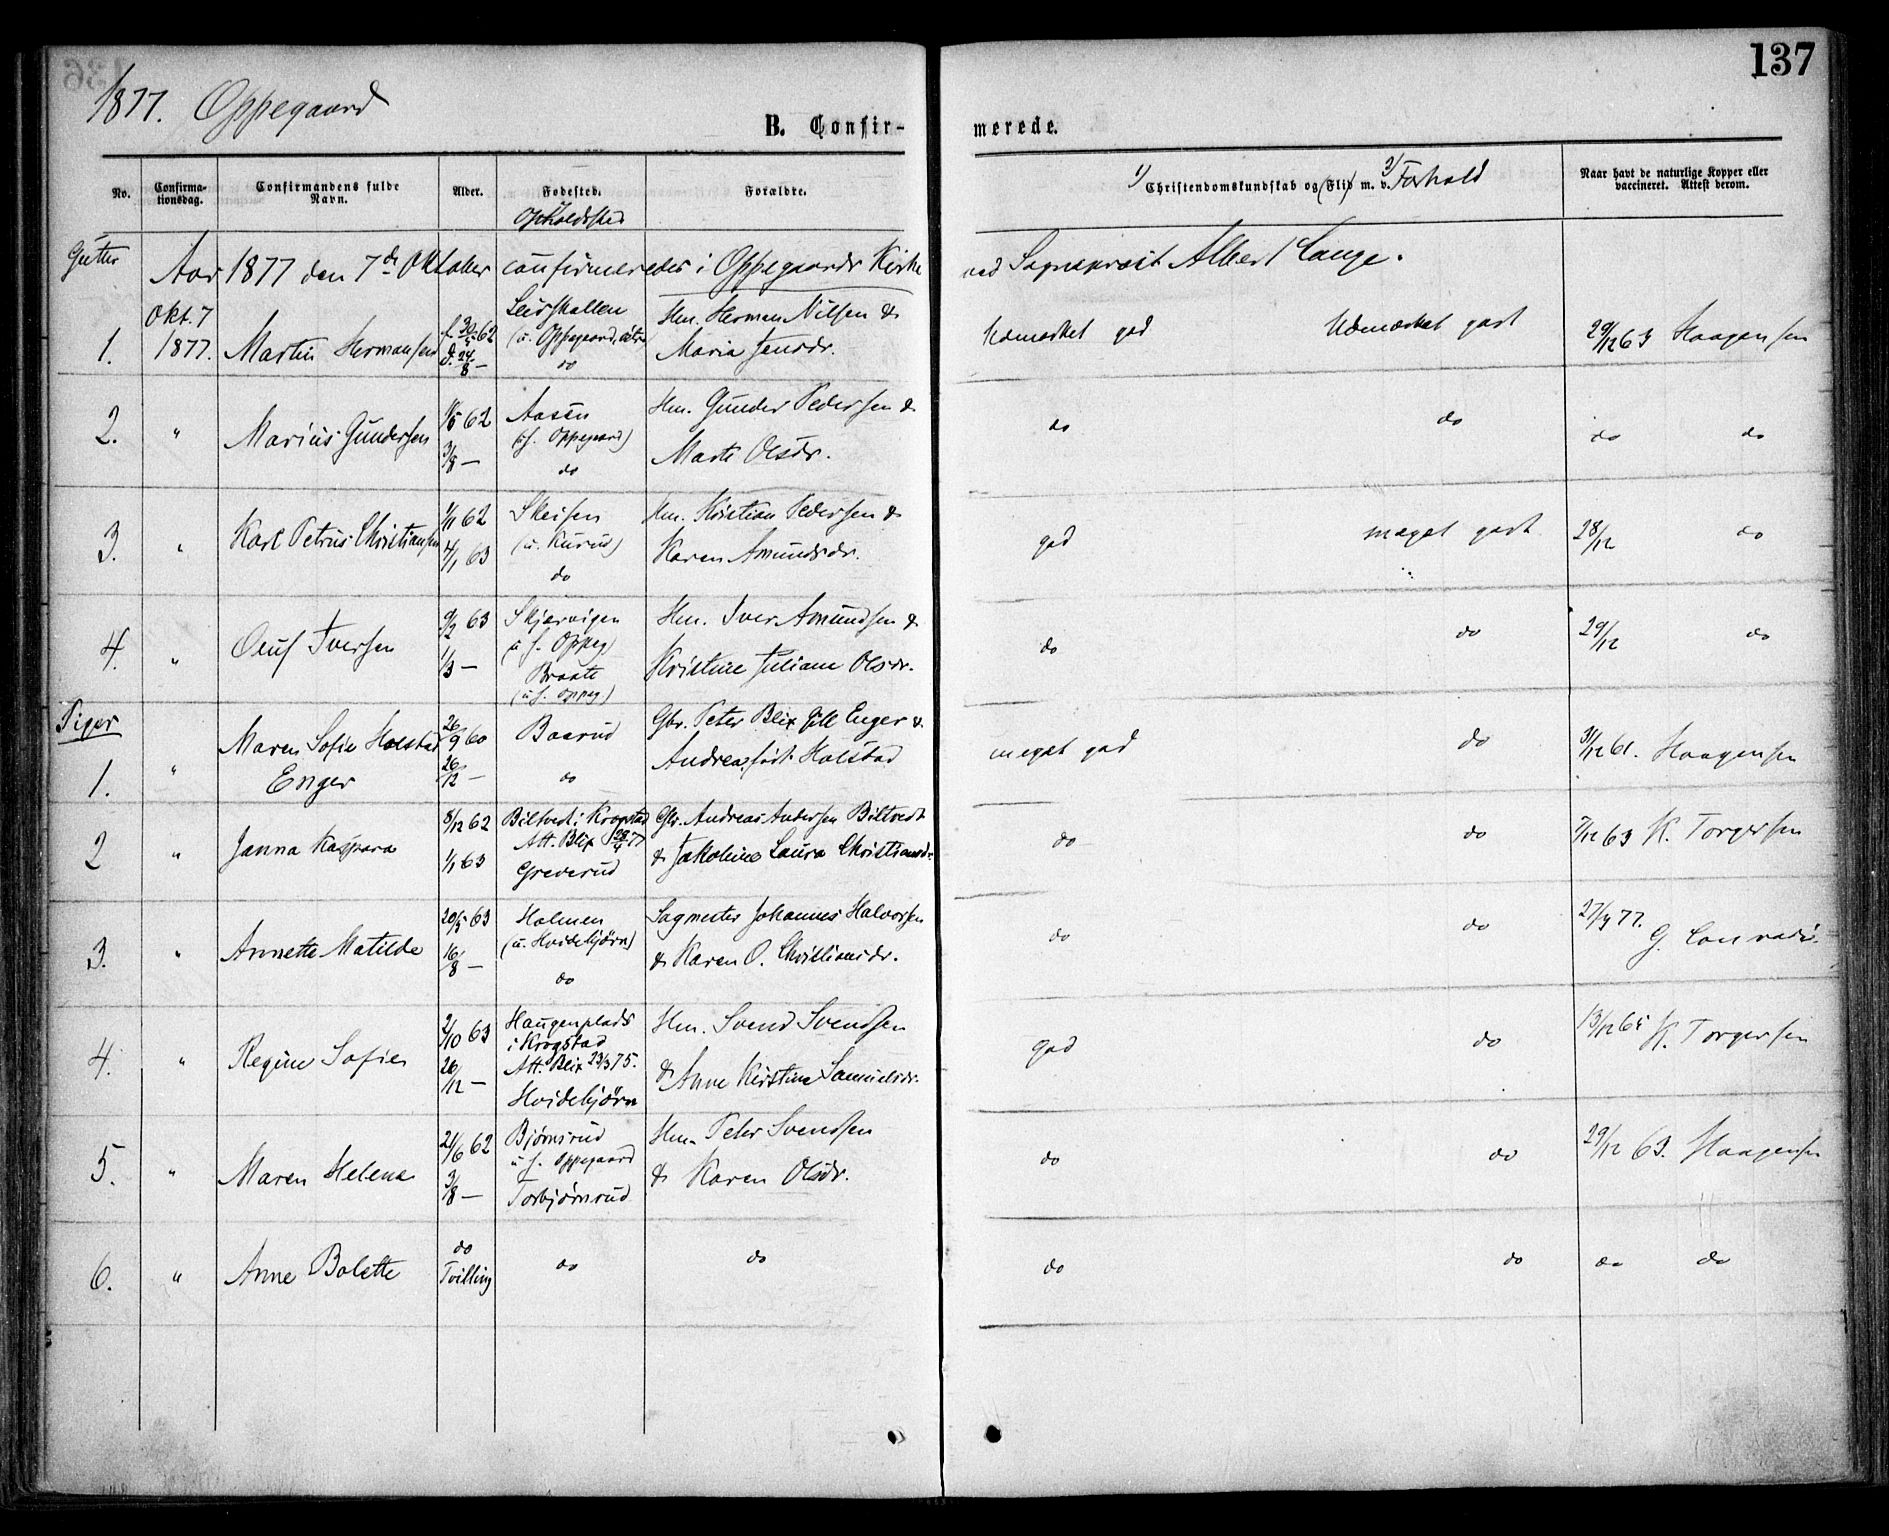 137
1877. Oppegaard
B. Confir- merede.
No. Confirmationsdag. Confirmandens fulde Navn. Alder. Fødested. Forældre. 1) Christendomskundskab og (Flid) m. v. 2) Forhold Naar havt de naturlige Kopper eller vaccineret. Attest derom.
Opholdssted
Gutter
Aar 1877 den 7de Oktober confirmeredes i Oppegaards Kirke ved Sogneprest Albert Lange.
1. Okt. 7 1877. Martin Hermansen f. 30/5 62 d. 24/8 — Leirskallen (u. Oppegaard, østre) do Hm. Herman Nilsen & Maria Jensdr. Udmærket god Udmærket godt 29/12 63 Haagensen
2. " Marius Gundersen 1/5 62 3/8 — Aasen (u. f. Oppegaard) do Hm. Gunder Pedersen & Marte Olsdr. do do do do
3. " Karl Petrus Christiansen 1/11 62 4/1 63 Skeisen (u. Kurud) do Hm. Kristian Pedersen & Karen Amundsdr. god meget godt 28/12 do
4. " Oluf Iversen 9/2 63 1/3 — Skjærvigen u. f. Oppeg) Braate (u. f. Oppeg.) Hm. Iver Amundsen & Kristine Juliane Olsdr. do do 29/12 do
Piger
1. " Maren Sofie Holstad Enger 26/9 60 26/12 — Baarud do Gbr. Peter Blix Gill Enger & Andrea, født Holstad meget god do 31/12 61. Haagensen
2 " Janna Kaspara 8/12 62 1/1 63 Biltvedt i Krogstad Att. Blix 28/4 77 Greverud Gbr. Andreas Andersen Biltvedt & Jakobine Laura Christiansdr. do do 7/12 63 K. Torgersen
3. " Annette Matilde 20/5 63 16/8 — Holmen (u. Hvidebjørn) do Sagmester Johannes Halvorsen & Karen O. Christiansdr. do do 27/9 77. G. Conradi.
4. " Regine Sofie 2/10 63 26/12 — Haugenplads i Krogstad Att. Blix 23/3 75. Hvidebjørn Hm. Svend Svendsen & Anne Kirstine Samuelsdr. god do 13/12 65 K. Torgersen
5. " Maren Helena 21/6 62 3/8 — Bjørnsrud u. f. Oppegaard Torbjørnrud Hm. Peter Svendsen & Karen Olsdr. do do 29/12 63. Haagensen
6. " Anne Bolette do Tvilling do do do do do do